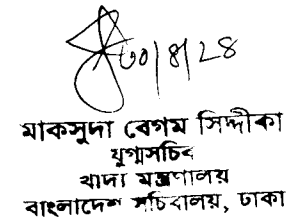 ৩০/৪/২৪
মাকসুদা বেগম সিদ্দীকা
যুগ্মসচিব
খাদ্য মন্ত্রণালয়
বাংলাদেশ সচিবালয়, ঢাকা